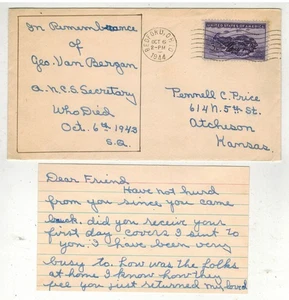 In Remembrance
of
Geo. Van Bergen
A.N.C.S. Secretary
Who Died
Oct. 6th 1943
BEDFORD, OHIO
OCT 6
8-PM
1944
UNITED STATES OF AMERICA
Pennell C. Price
614 N. 5th St.
Atchison
Kansas.
Dear Friend
Have not hurd
from you since you came
back. did you receive your
first day covers I sent to
you. I have been very
busy to. how was the folks
at home I know how they
feel you just returned my loved